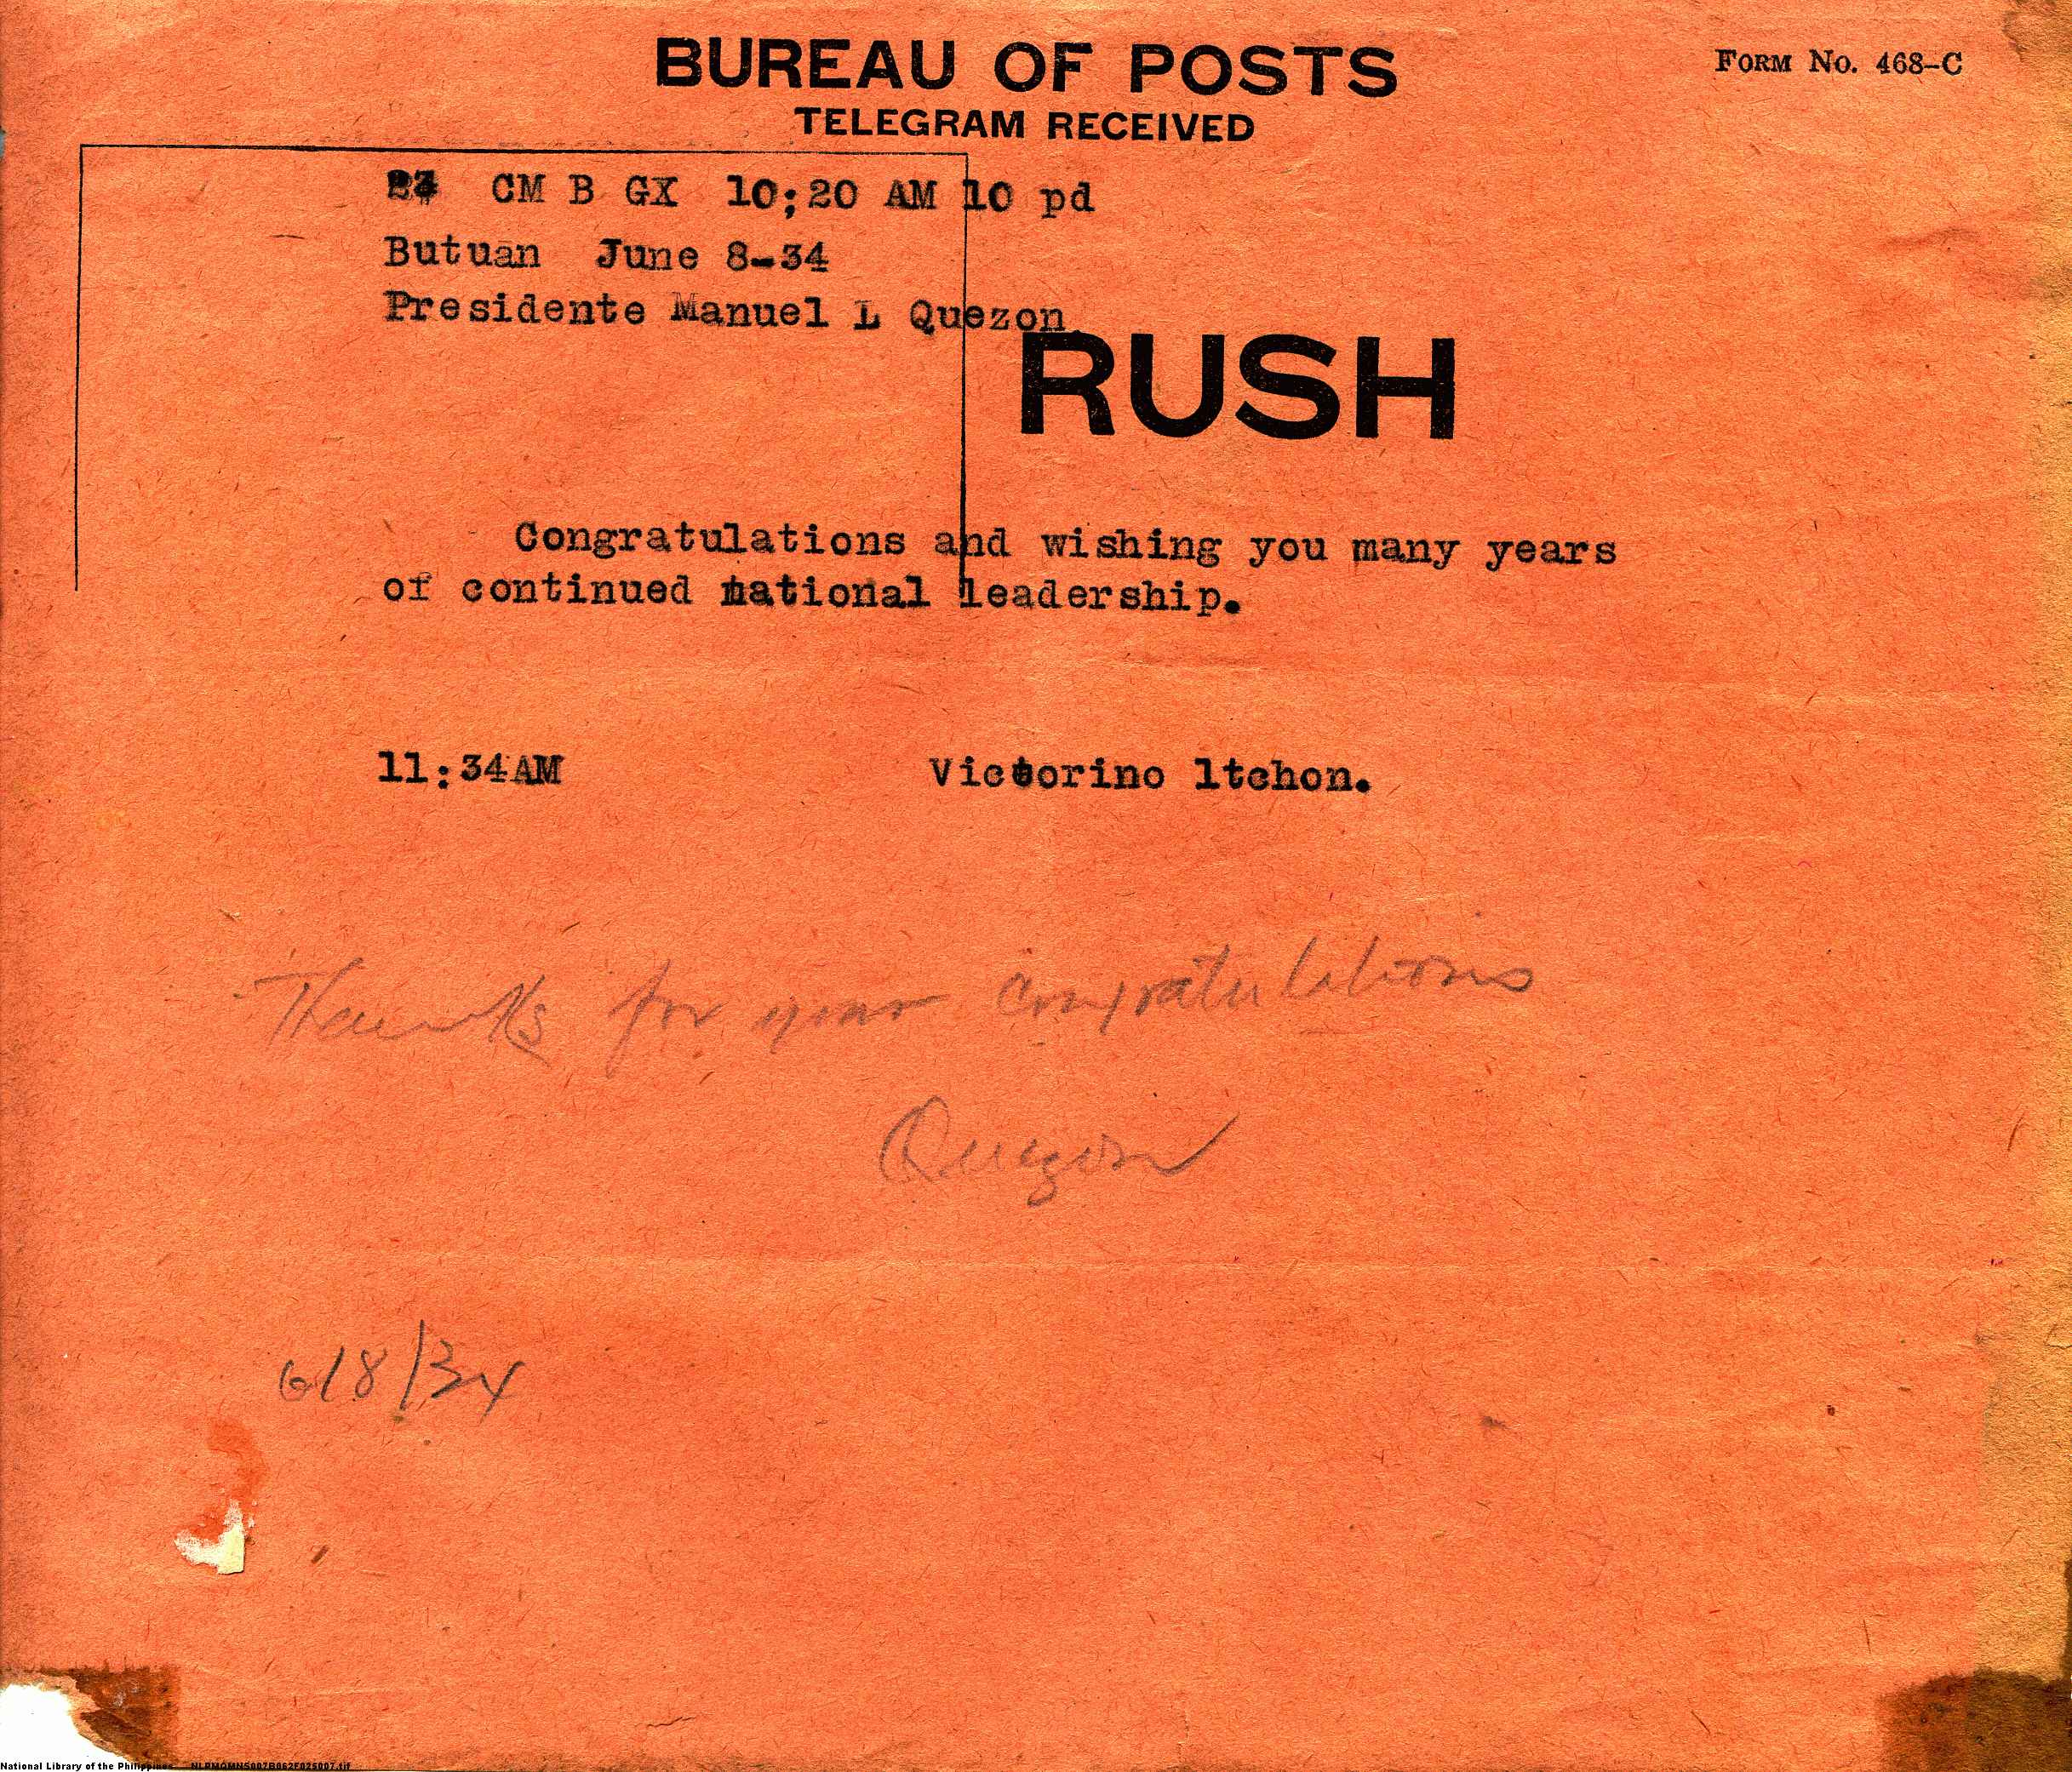 BUREAU OF POSTS
FORM No. 468-C
TELEGRAM RECEIVED
CM B GX 10;20 AM 10 pd
Butuan June 8-34
Presidente Manuel L Quezon
RUSH
Congratulations and wishing you many years
of continued national leadership.
11:34AM Victorino ltchon.
Thanks for your congratulations
Quezon
6/8/34
National Library of the Philippines